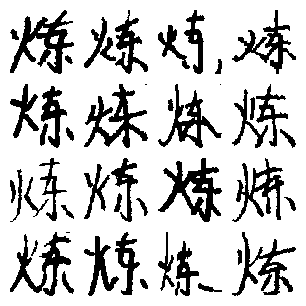 炼炼炼炼
炼炼炼炼
炼炼炼炼
炼炼炼炼